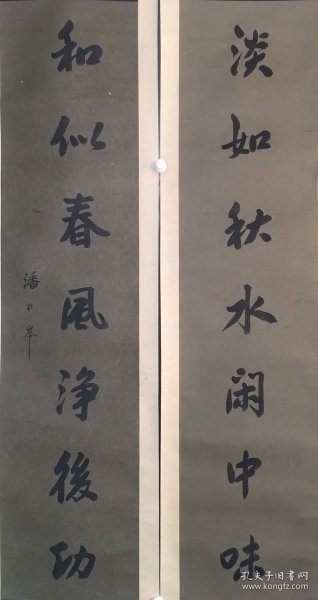 淡如秋水闲中味
和似春風浄後功
潘龄皋
孔夫子旧书网
www.kongfz.com